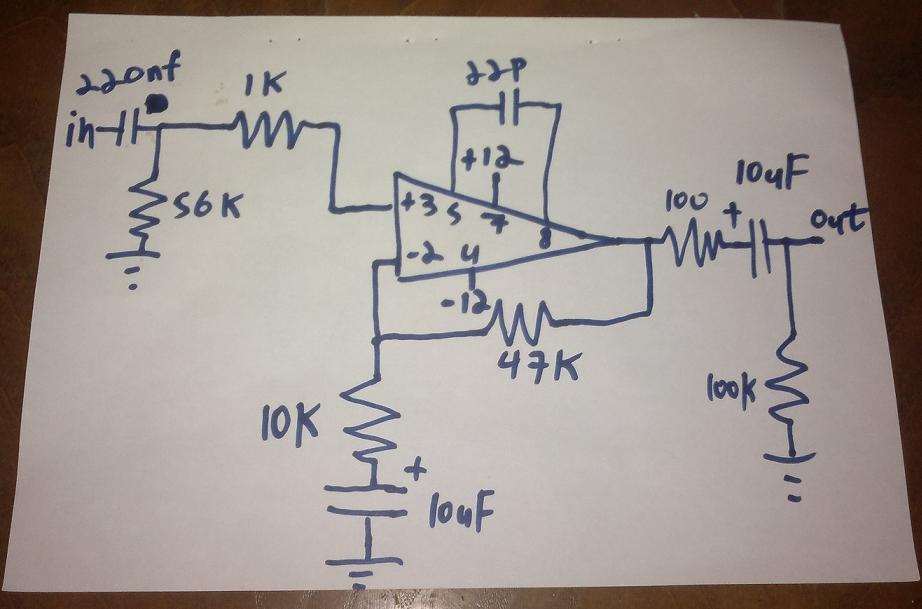 220nf
1K
22P
in
+12
10uF
56K
100
+
out
+3
5
7
8
-2
4
-12
47K
100K
10K
+
10uF